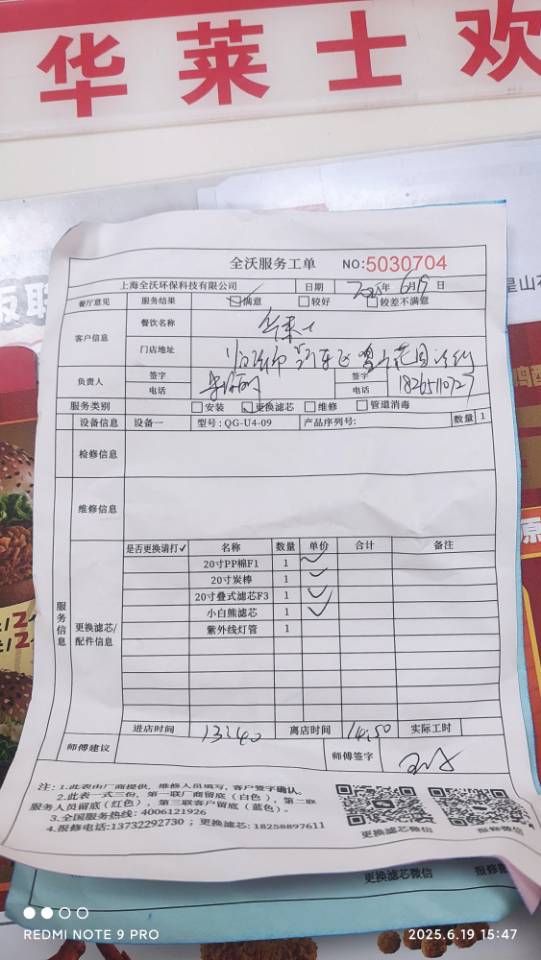 华莱士欢
全沃服务工单 NO:5030704
上海全沃环保科技有限公司 日期 2025年6月19日
餐厅意见 服务结果 ☑满意 □较好 □较差不满意
客户信息 餐饮名称 华莱士
门店地址
负责人 签字 签字
电话 电话 18265110727
服务类别 □安装 ☑更换滤芯 □维修 □管道消毒
设备信息 设备一 型号:QG-U4-09 产品序列号: 数量 1
检修信息
维修信息
服务信息
更换滤芯/
配件信息
是否更换请打✓ 名称 数量 单价 合计 备注
20寸PP棉F1 1 ✓
20寸炭棒 1 ✓
20寸叠式滤芯F3 1 ✓
小白熊滤芯 1 ✓
紫外线灯管 1
进店时间 13:40 离店时间 14:50 实际工时
师傅建议 师傅签字
注:1.此表由厂商提供,维修人员填写,客户签字确认。
2.此表一式三份,第一联厂商留底(白色),第二联
服务人员留底(红色),第三联客户留底(蓝色)。
3.全国服务热线:4006121926
4.报修电话:13732292730;更换滤芯:18258897611
更换滤芯微信 报修微信
更换滤芯微信 报修
REDMI NOTE 9 PRO 2025.6.19 15:47